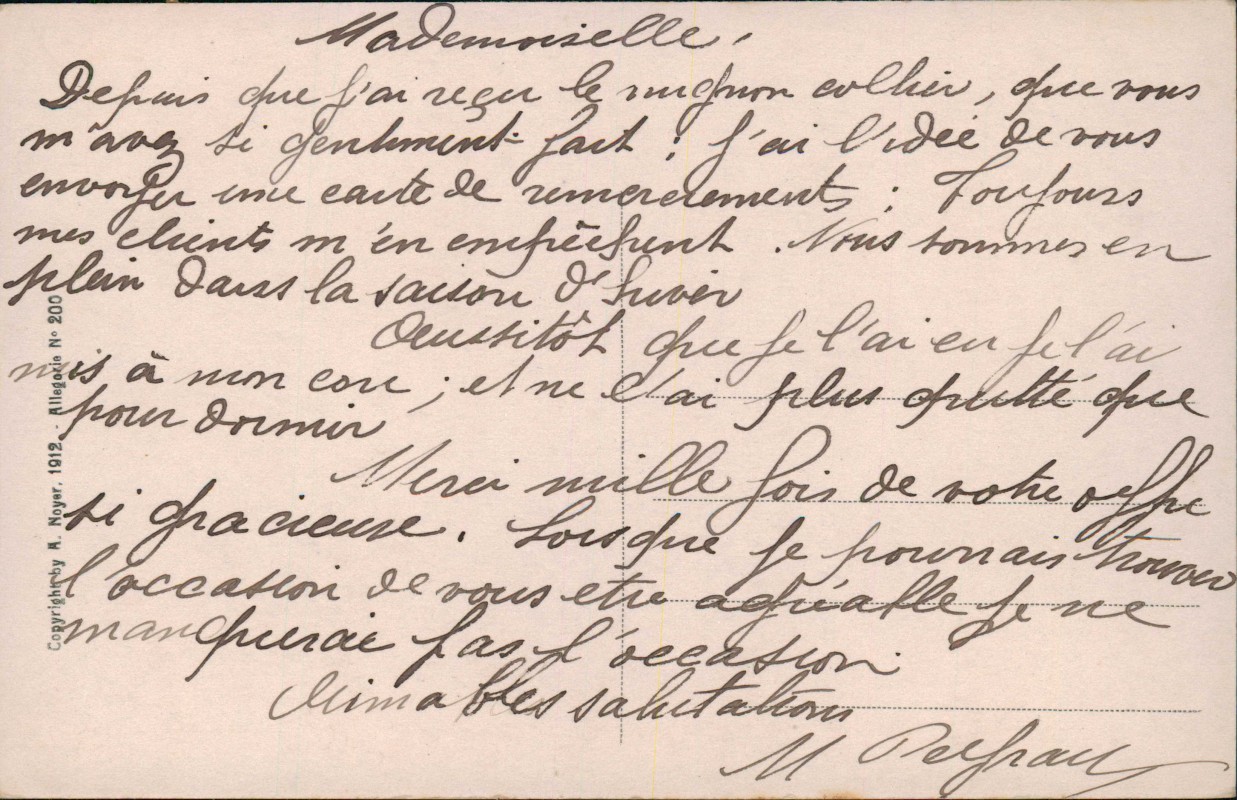 Mademoiselle,
Depuis que j'ai reçu le mignon collier, que vous
m'avez si gentiment fait ; j'ai l'idée de vous
envoyer une carte de remerciements ; Toujours
mes clients m'en empêchent . Nous sommes en
plein dans la saison d'hiver
Aussitôt que je l'ai eu je l'ai
mis à mon cou ; et ne l'ai plus quitté que
pour dormir
Merci mille fois de votre offre
si gracieuse. Lorsque je pourrais trouver
l'occasion de vous etre agréable je ne
manquerai pas l'occasion.
Aimables salutations
M
Copyright by A. Noyer, 1912. - Allegorie No 200